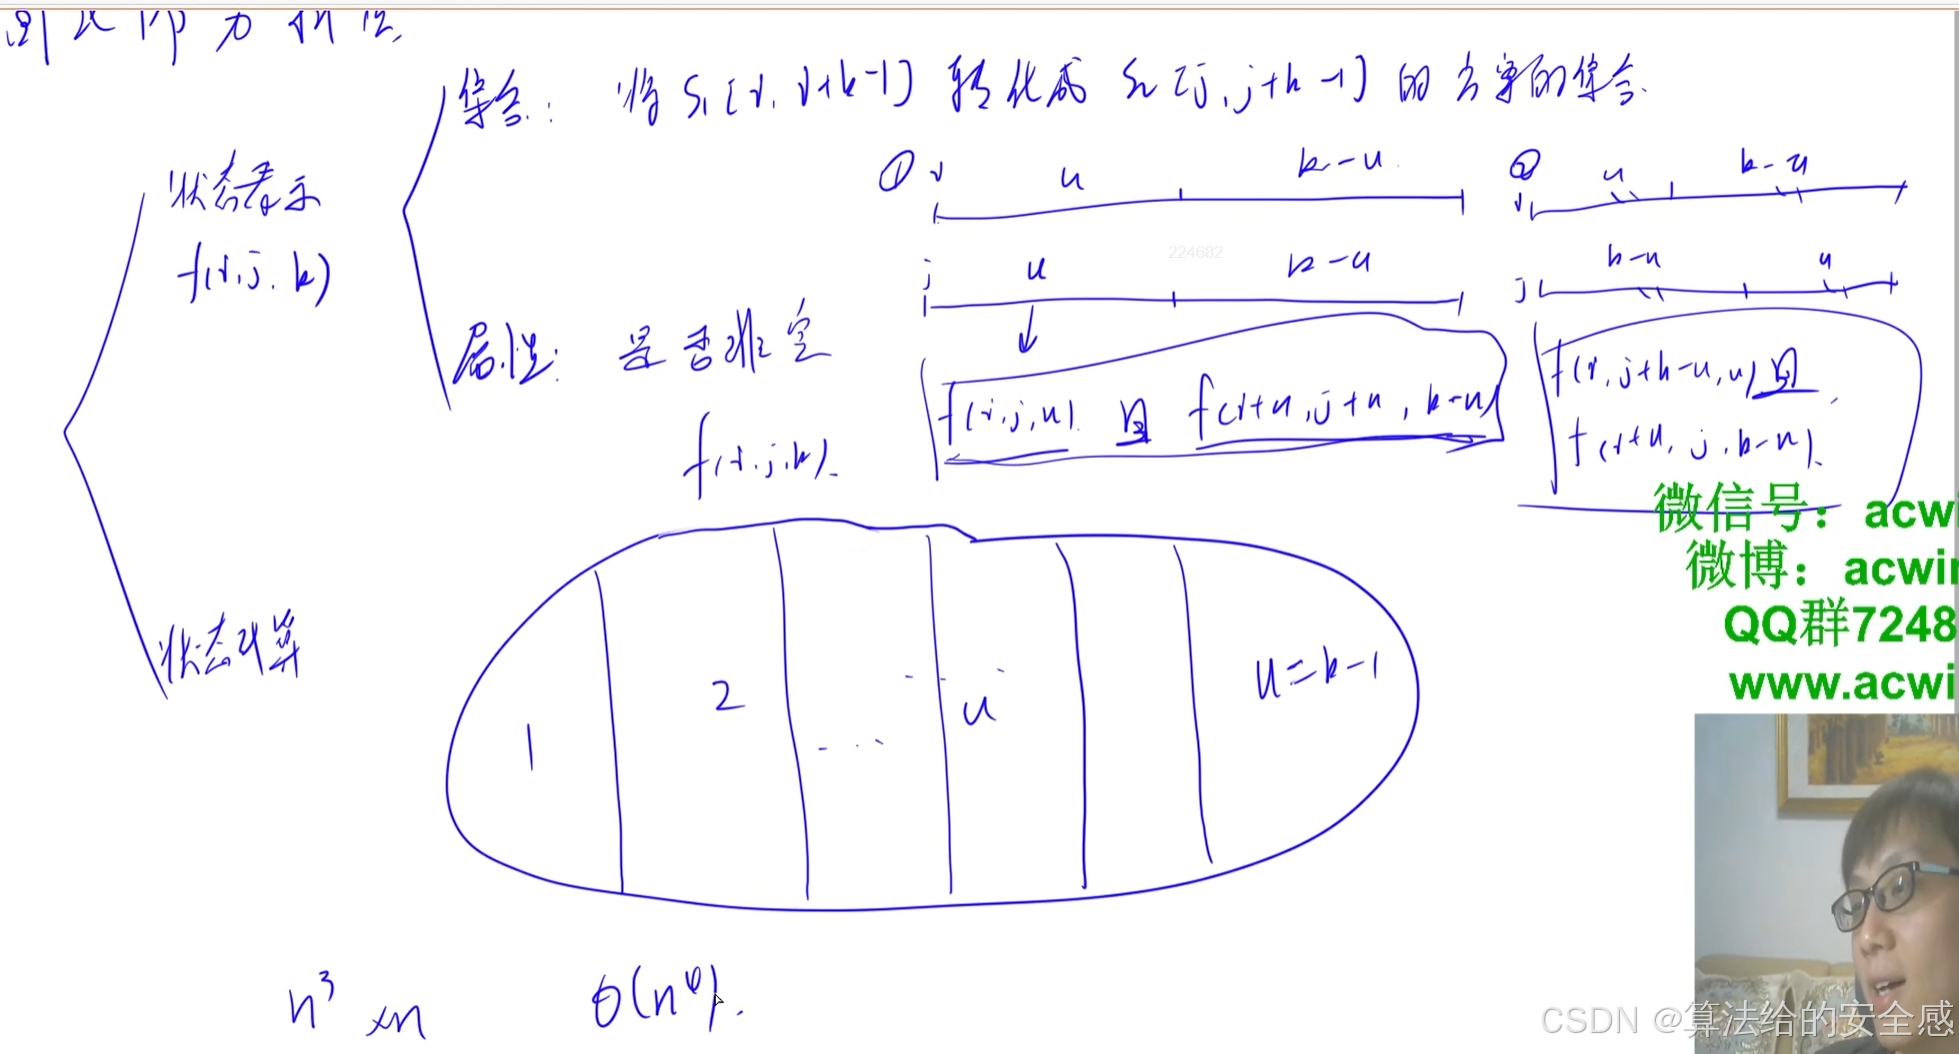 集合: 将 S₁[i, i+k-1] 转化成 S₂[j, j+k-1] 的方案的集合.
状态表示
f(i, j, k)
① i u k-u
j u k-u
② i u k-u
j k-u u
属性: 是否非空
f(i, j, k).
f(i, j, u) 且 f(i+u, j+u, k-u)
f(i, j+k-u, u) 且
f(i+u, j, k-u).
224682
微信号: acwi
微博: acwin
QQ群7248
www.acwi
状态计算
1 2 ... u ... u=k-1
n³ ×n O(n⁴).
CSDN @算法给的安全感